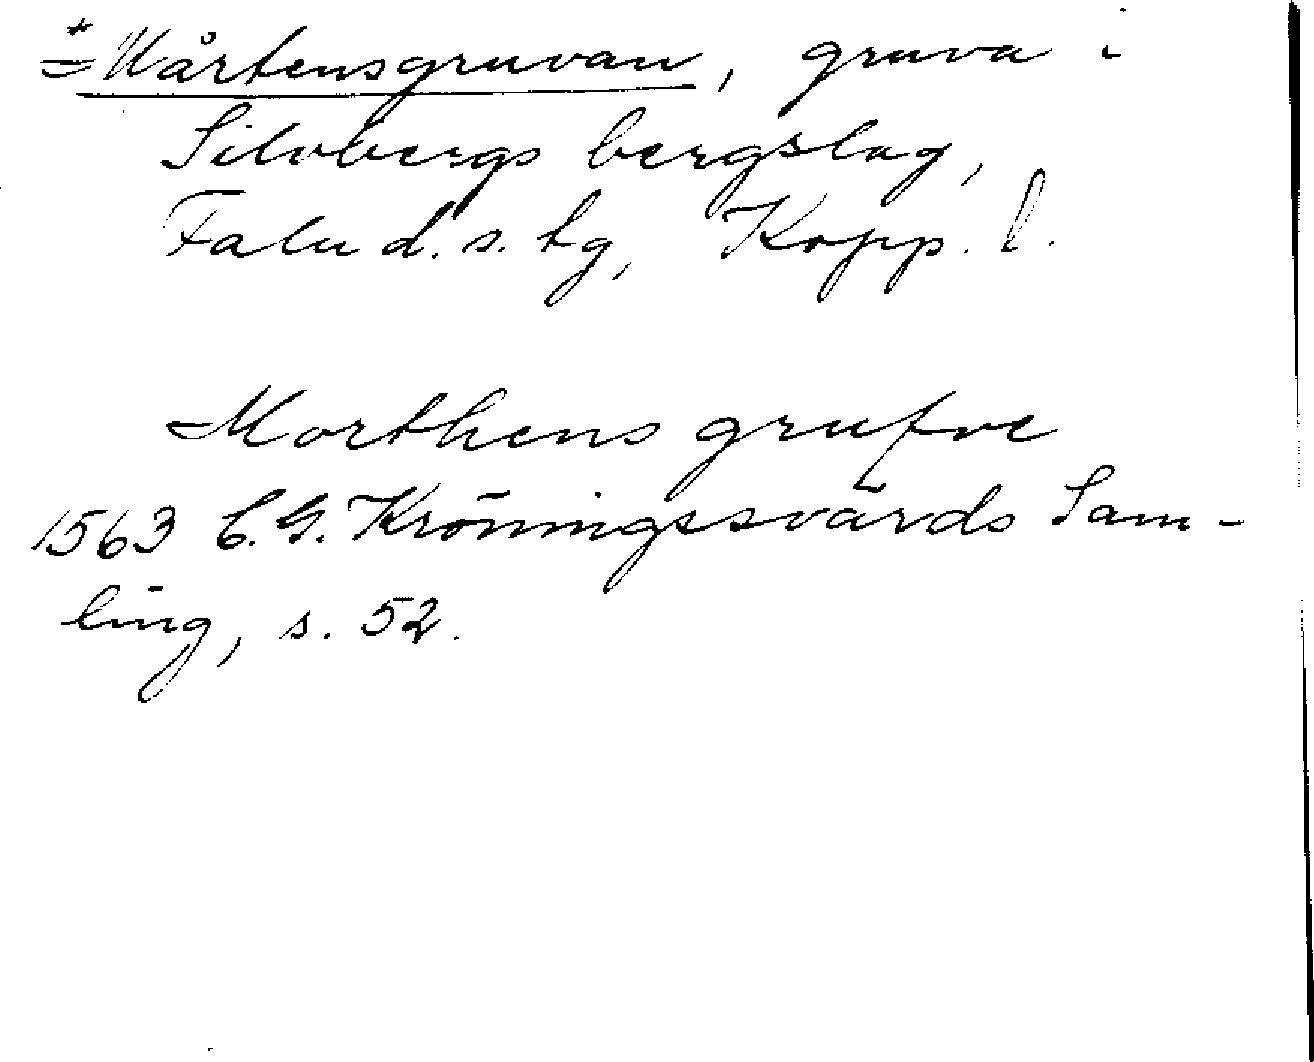 *Mårtensgruvan, gruva i
Silvbergs bergslag,
Falu d. s. tg, Kopp. l.
Morthens grufve
1563 C. G. Kröningssvärds Sam-
ling, s. 52.